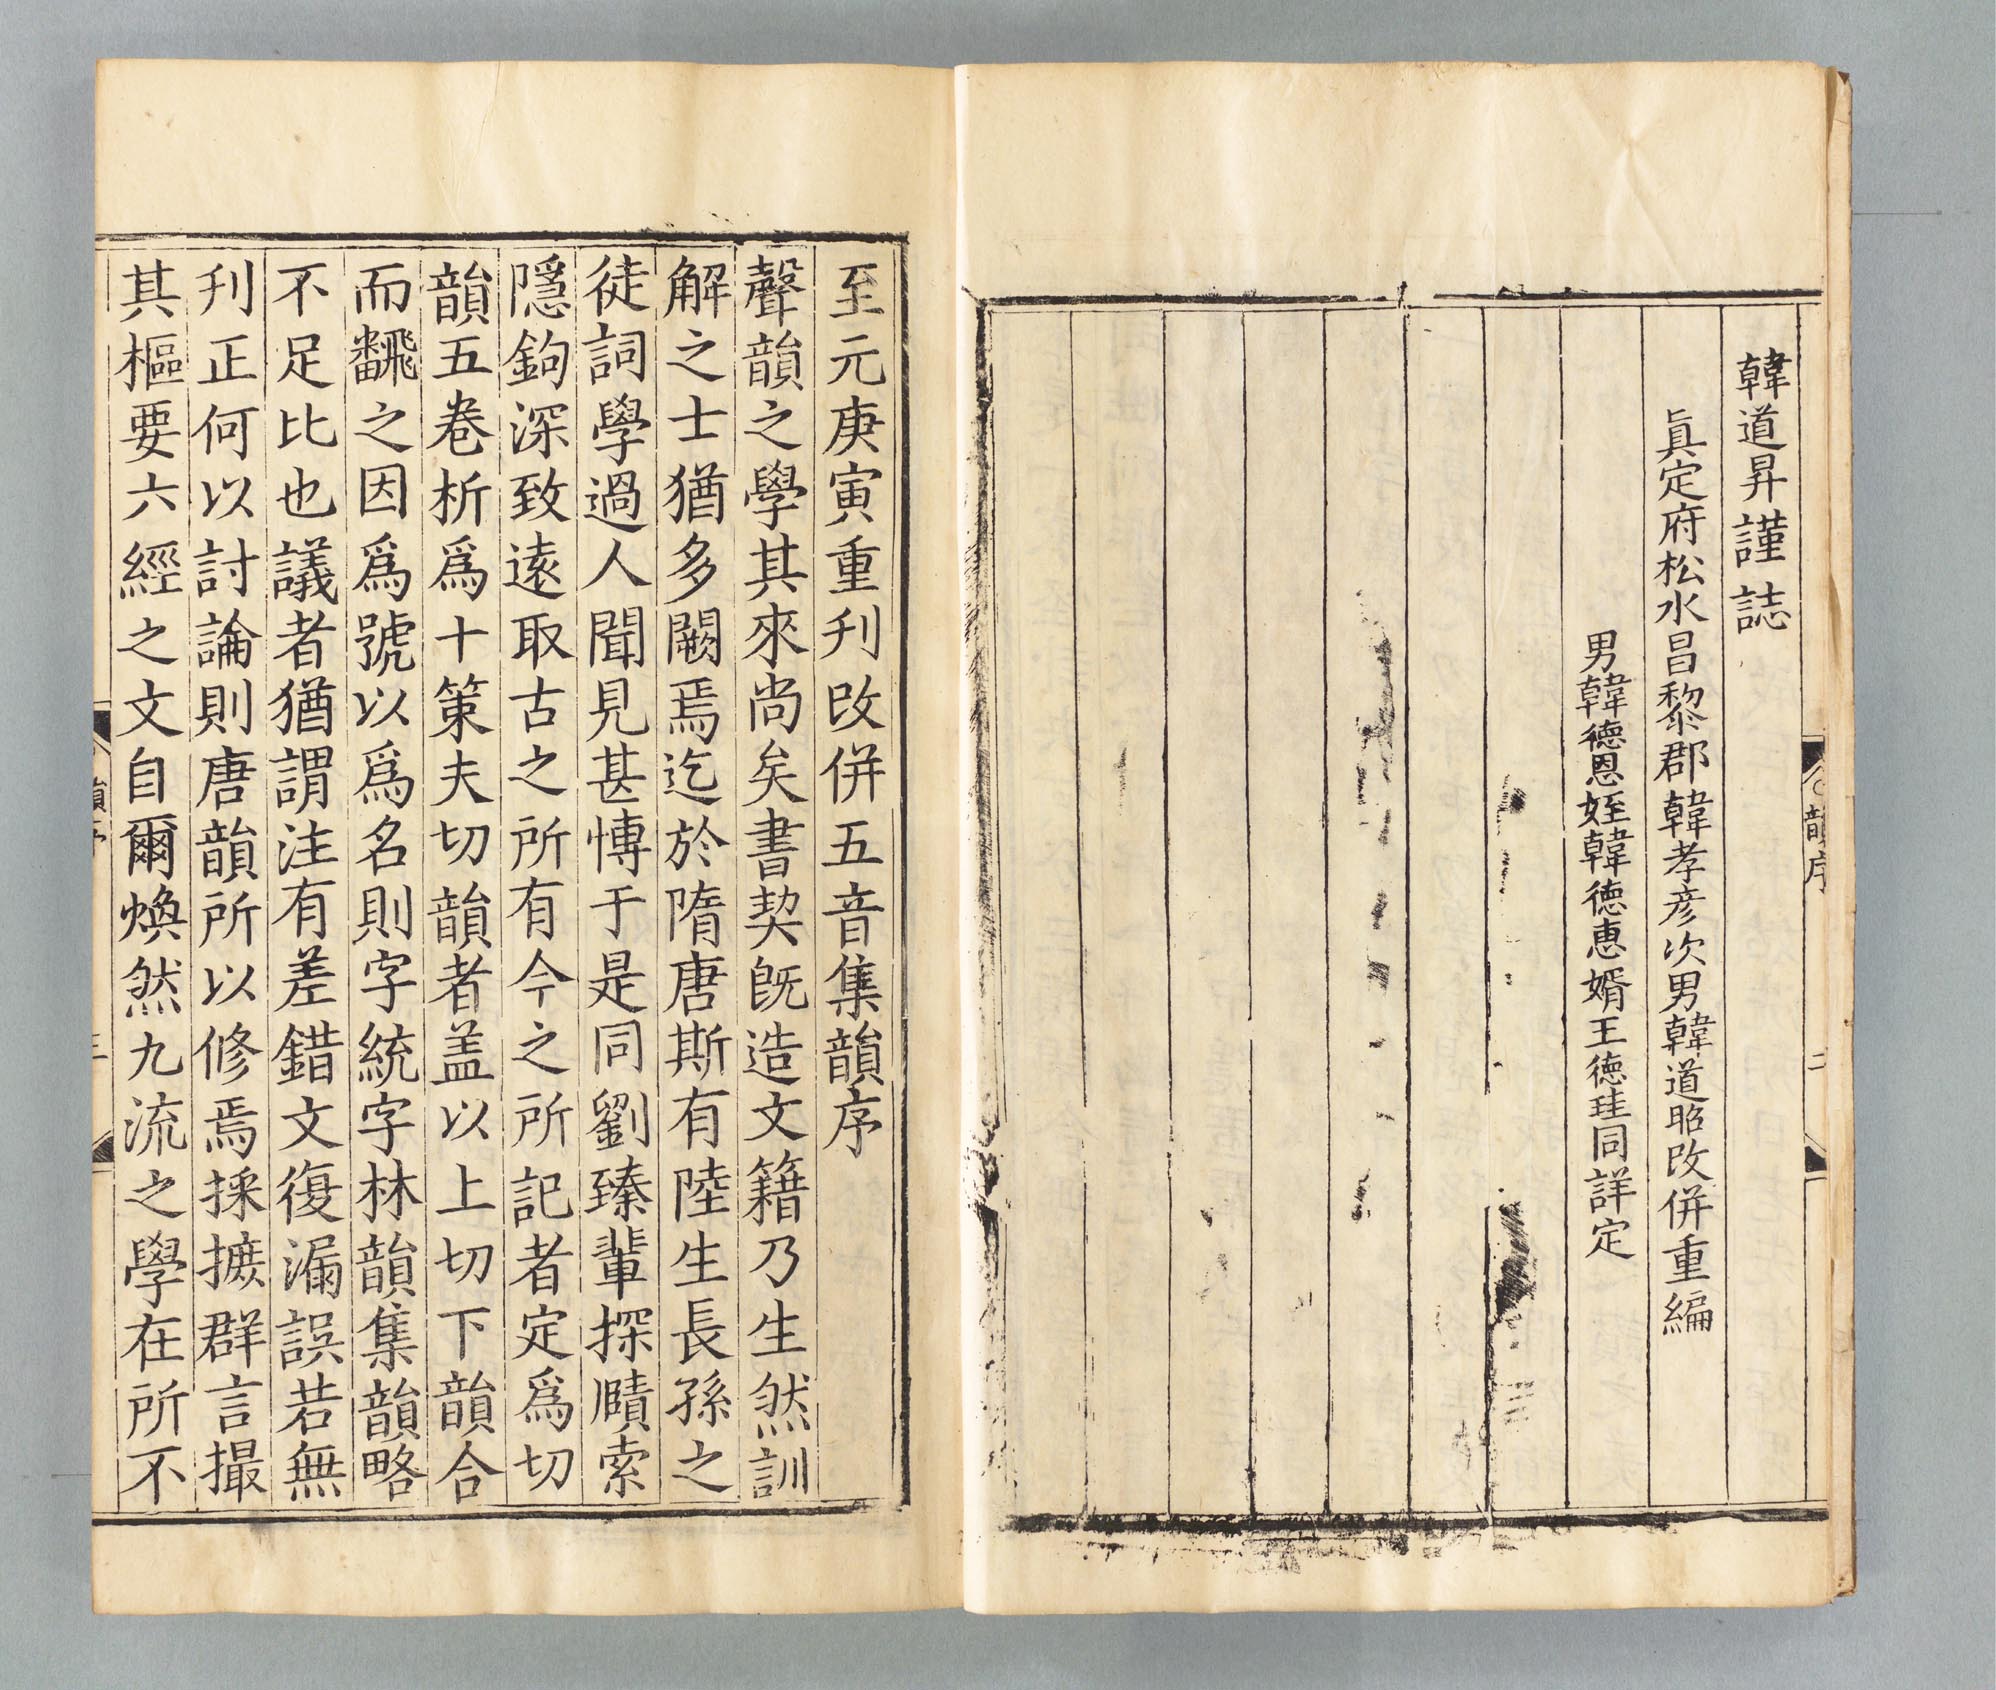 韓道昇謹誌
眞定府松水昌黎郡韓孝彦次男韓道昭改併重編
男韓德恩姪韓德惠婿王德珪同詳定
韻序
二
至元庚寅重刊改併五音集韻序
聲韻之學其來尚矣書契旣造文籍乃生然訓
解之士猶多闕焉迄於隋唐斯有陸生長孫之
徒詞學過人聞見甚愽于是同劉臻軰探賾索
隱鉤深致遠取古之所有今之所記者定爲切
韻五卷析爲十策夫切韻者盖以上切下韻合
而飜之因爲號以爲名則字統字林韻集韻略
不足比也議者猶謂注有差錯文復漏誤若無
刋正何以討論則唐韻所以修焉採摭群言撮
其樞要六經之文自爾煥然九流之學在所不
韻序
三